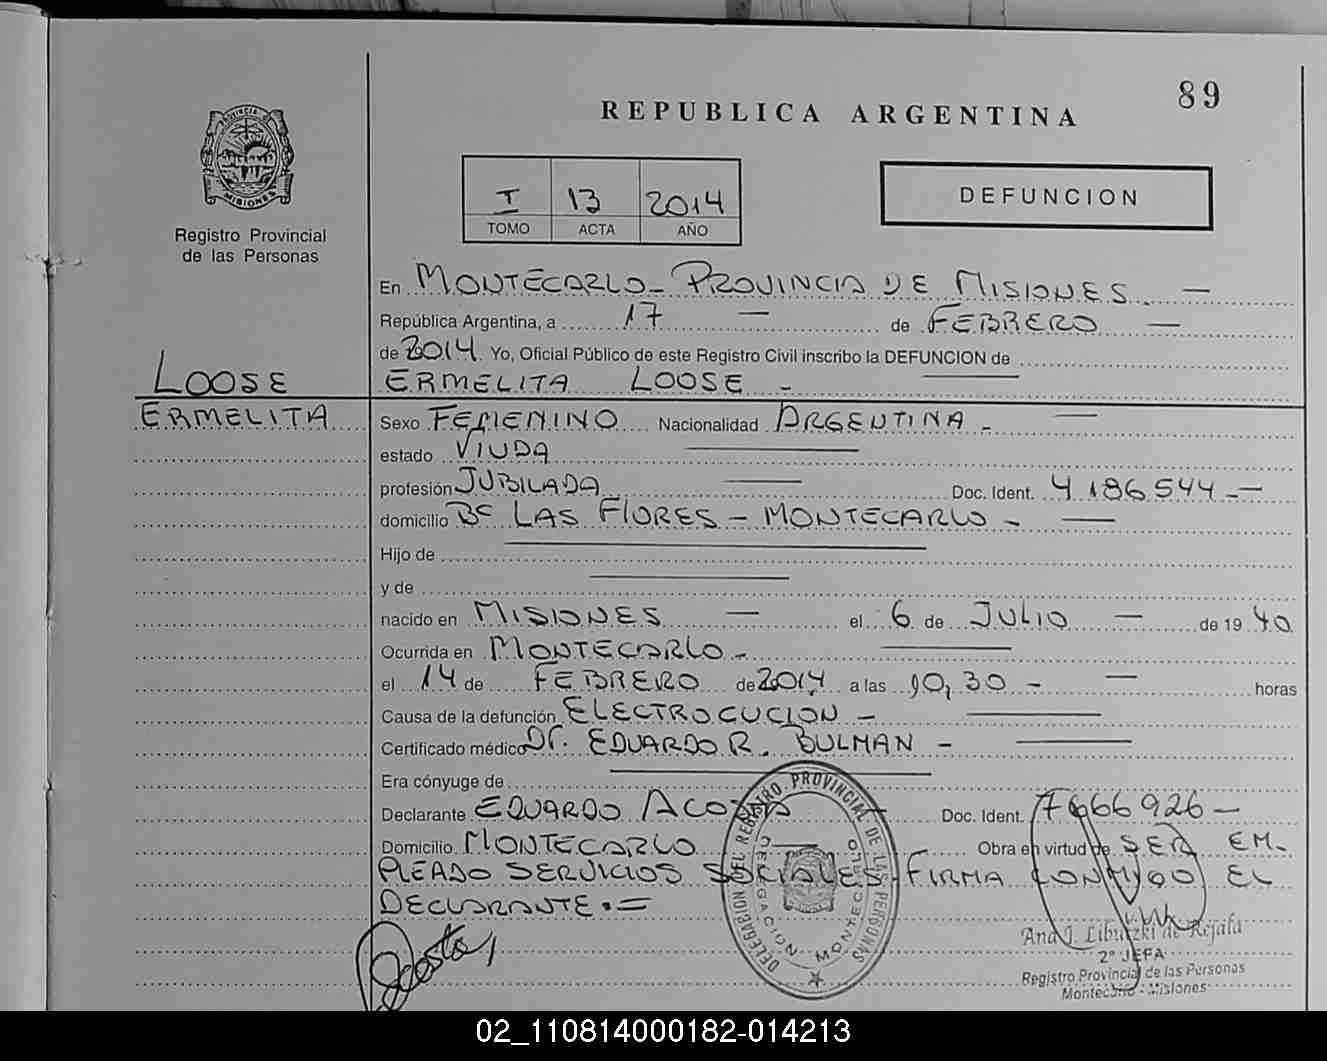 89
REPUBLICA ARGENTINA
PROVINCIA DE
MISIONES
Registro Provincial
de las Personas
I 13 2014
TOMO ACTA AÑO
DEFUNCION
En MONTECARLO - PROVINCIA DE MISIONES. —
República Argentina, a 17 — de FEBRERO —
de 2014. Yo, Oficial Público de este Registro Civil inscribo la DEFUNCION de
LOOSE
ERMELITA LOOSE -
ERMELITA
Sexo FEMENINO Nacionalidad ARGENTINA - —
estado VIUDA
profesión JUBILADA — Doc. Ident. 4.186.544 - —
domicilio Bº LAS FLORES - MONTECARLO - —
Hijo de
y de
nacido en MISIONES — el 6 de JULIO — de 19 40
Ocurrida en MONTECARLO -
el 14 de FEBRERO de 2014 a las 10,30 - — horas
Causa de la defunción ELECTROCUCION -
Certificado médico Dr. EDUARDO R. BULMAN -
Era cónyuge de
Declarante EDUARDO ACOSTA — Doc. Ident. 7666926 -
Domicilio MONTECARLO — Obra en virtud de SER EM-
PLEADO SERVICIOS SOCIALES FIRMA CONMIGO EL
DECLARANTE . =
DELEGACION DEL REGISTRO PROVINCIAL DE LAS PERSONAS
DELEGACION MONTECARLO
Acosta
Ana J. Libutzki de Rejala
2º JEFA
Registro Provincial de las Personas
Montecarlo - Misiones
02_110814000182-014213